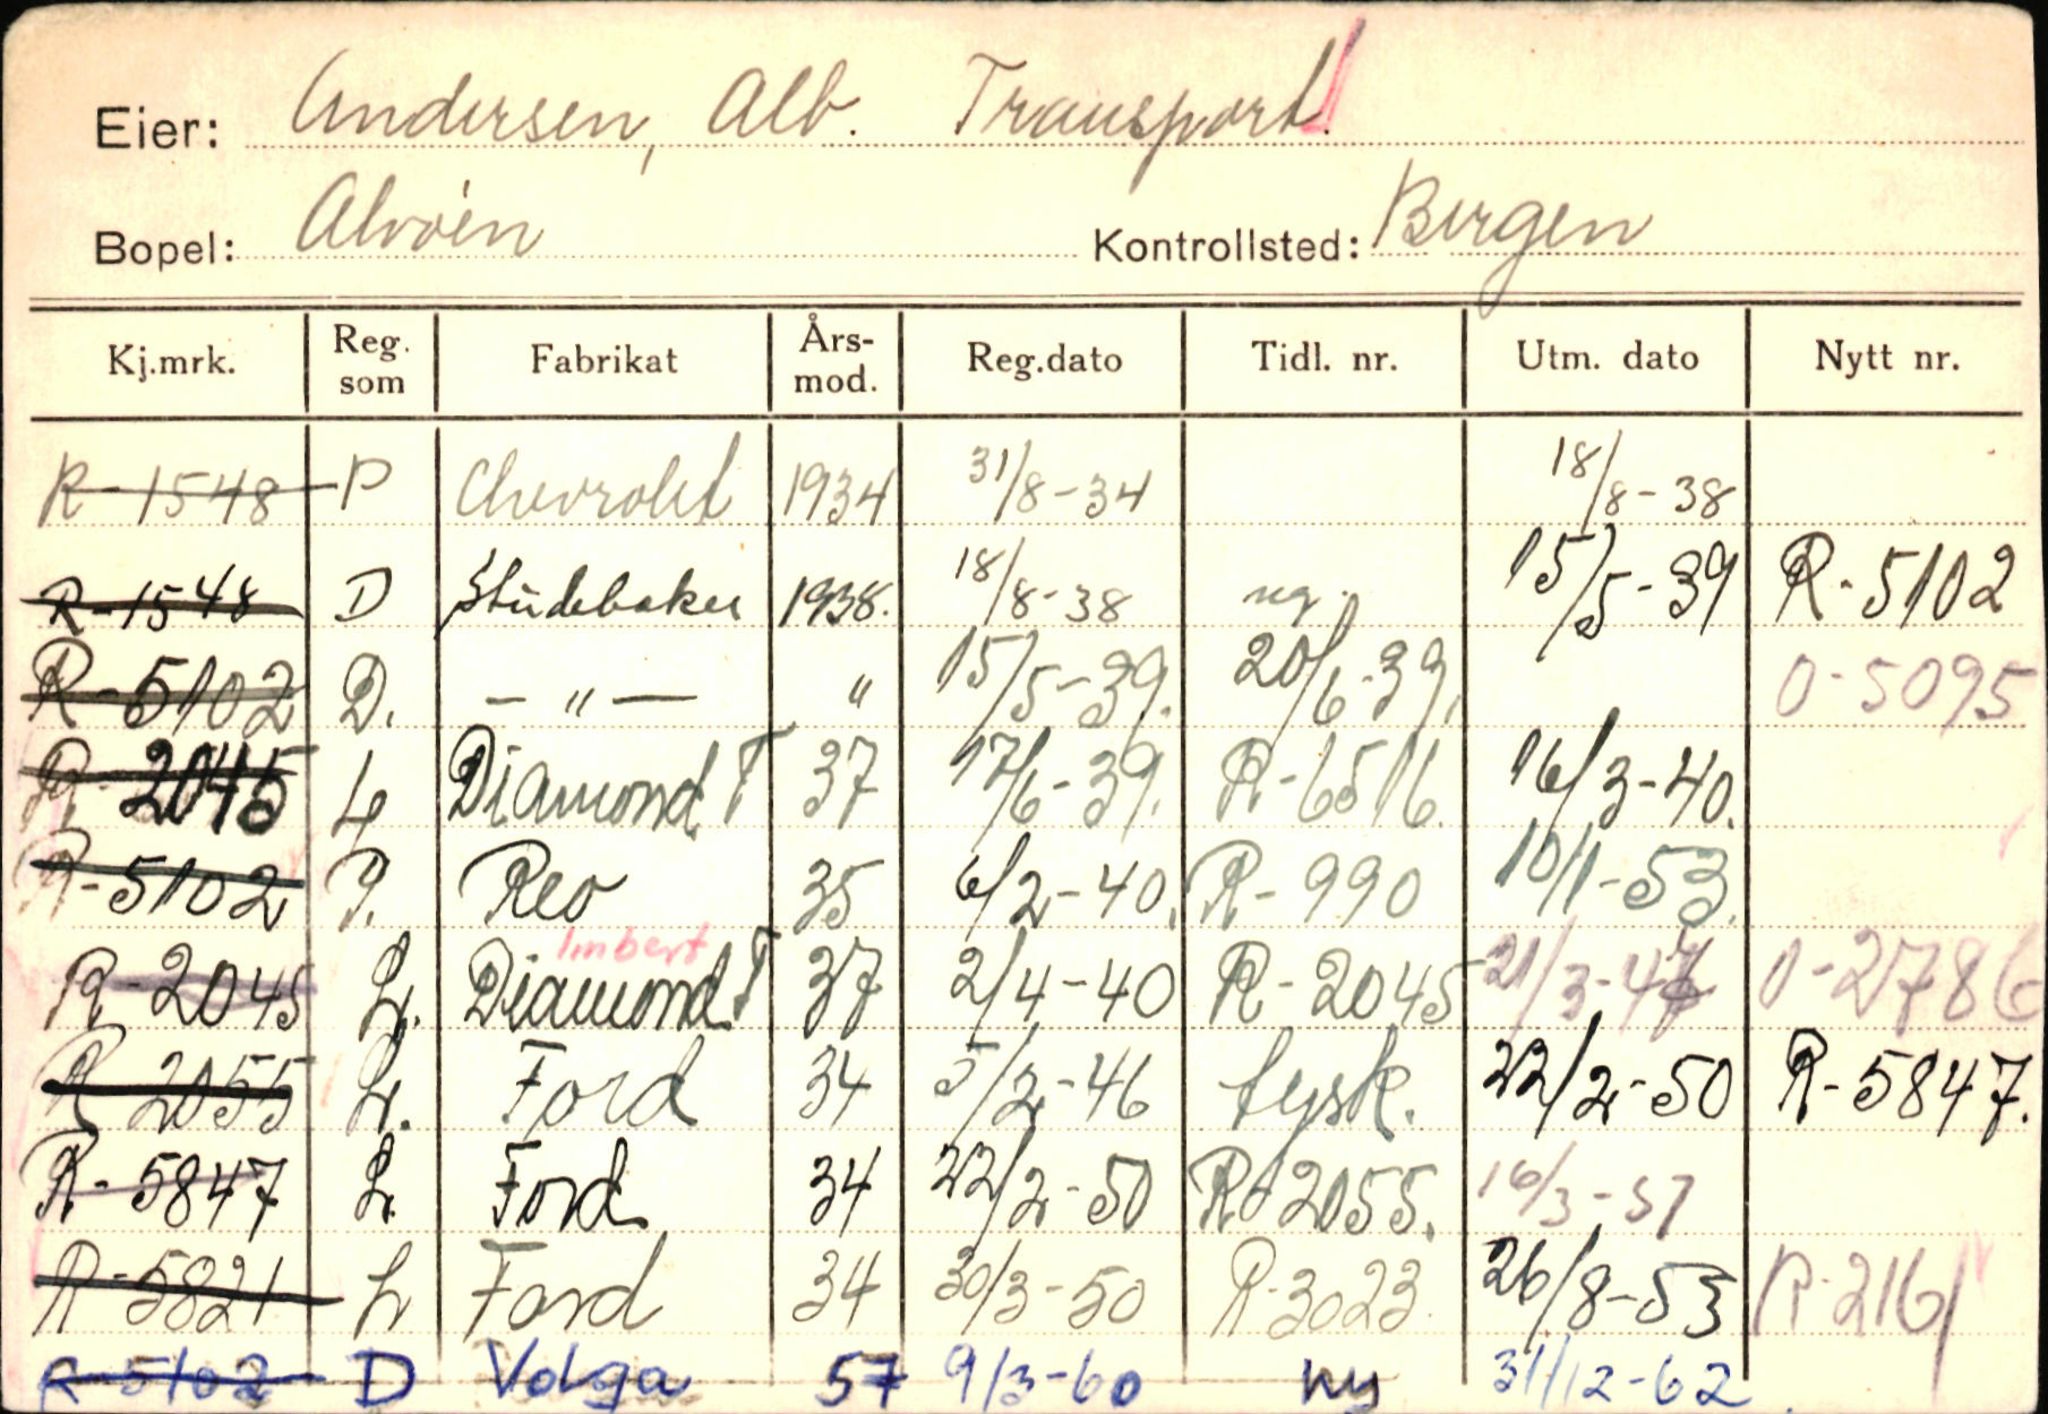 Eier: Andersen, Alb. Transport.
Bopel: Alvøen Kontrollsted: Bergen
Kj.mrk. Reg. som Fabrikat Års-mod. Reg.dato Tidl. nr. Utm. dato Nytt nr.
R-1548 P Chevrolet 1934 31/8-34 18/8-38
R-1548 D Studebaker 1938. 18/8-38 ny. 15/5-39 R-5102
R-5102 D. - " - " 15/5-39. 20/6-39. O-5095
R-2045 L Diamond T 37 17/6-39. R-6516. 16/3-40.
R-5102 P. Reo 35 6/2-40. R-990 10/1-53.
Imbert
R-2045 L. Diamond T 37 2/4-40 R-2045 21/3-47 O-2786
R-2055 L. Ford 34 5/2-46 tysk. 22/2-50 R-5847.
R-5847 L Ford 34 22/2-50 R-2055. 16/3-57
R-5821 L Ford 34 30/3-50 R-3023. 26/8-53 R-2161
R-5102 D Volga 57 9/3-60 ny 31/12-62